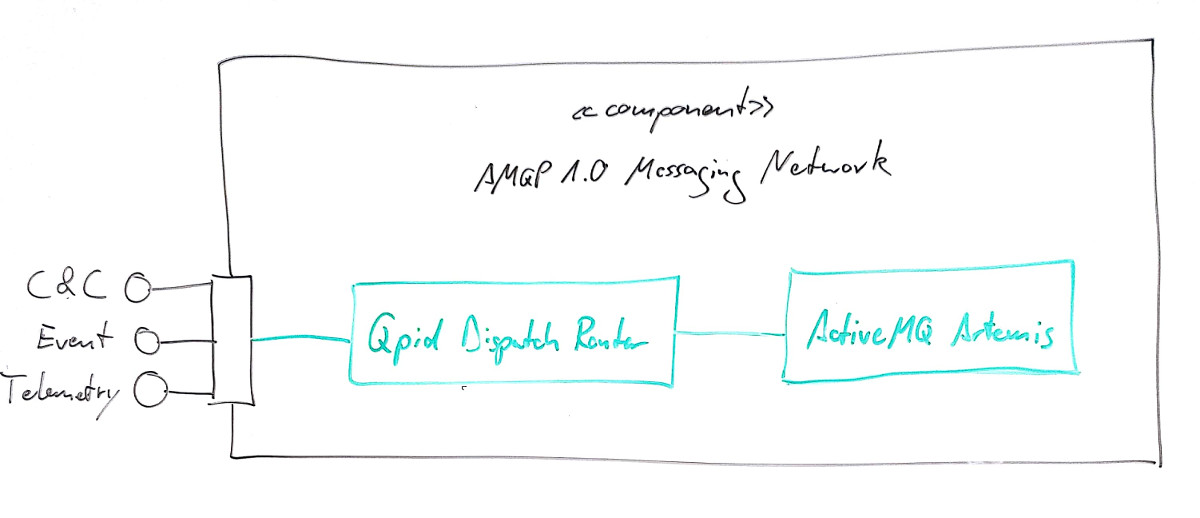 <<component>>
AMQP 1.0 Messaging Network
C&C
Event
Telemetry
Qpid Dispatch Router
ActiveMQ Artemis